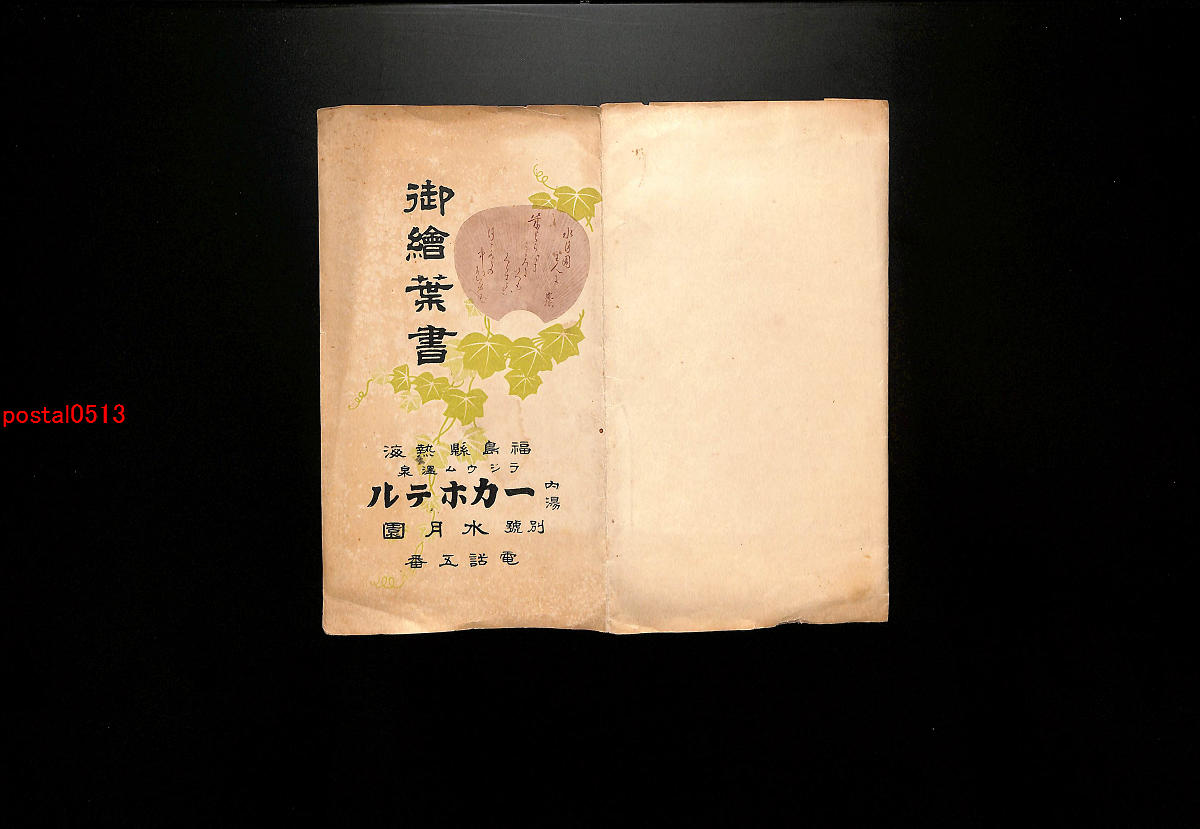 御繪葉書
福島縣熱海
ラジウム溫泉
内湯
一力ホテル
別號 水月園
電話五番
postal0513